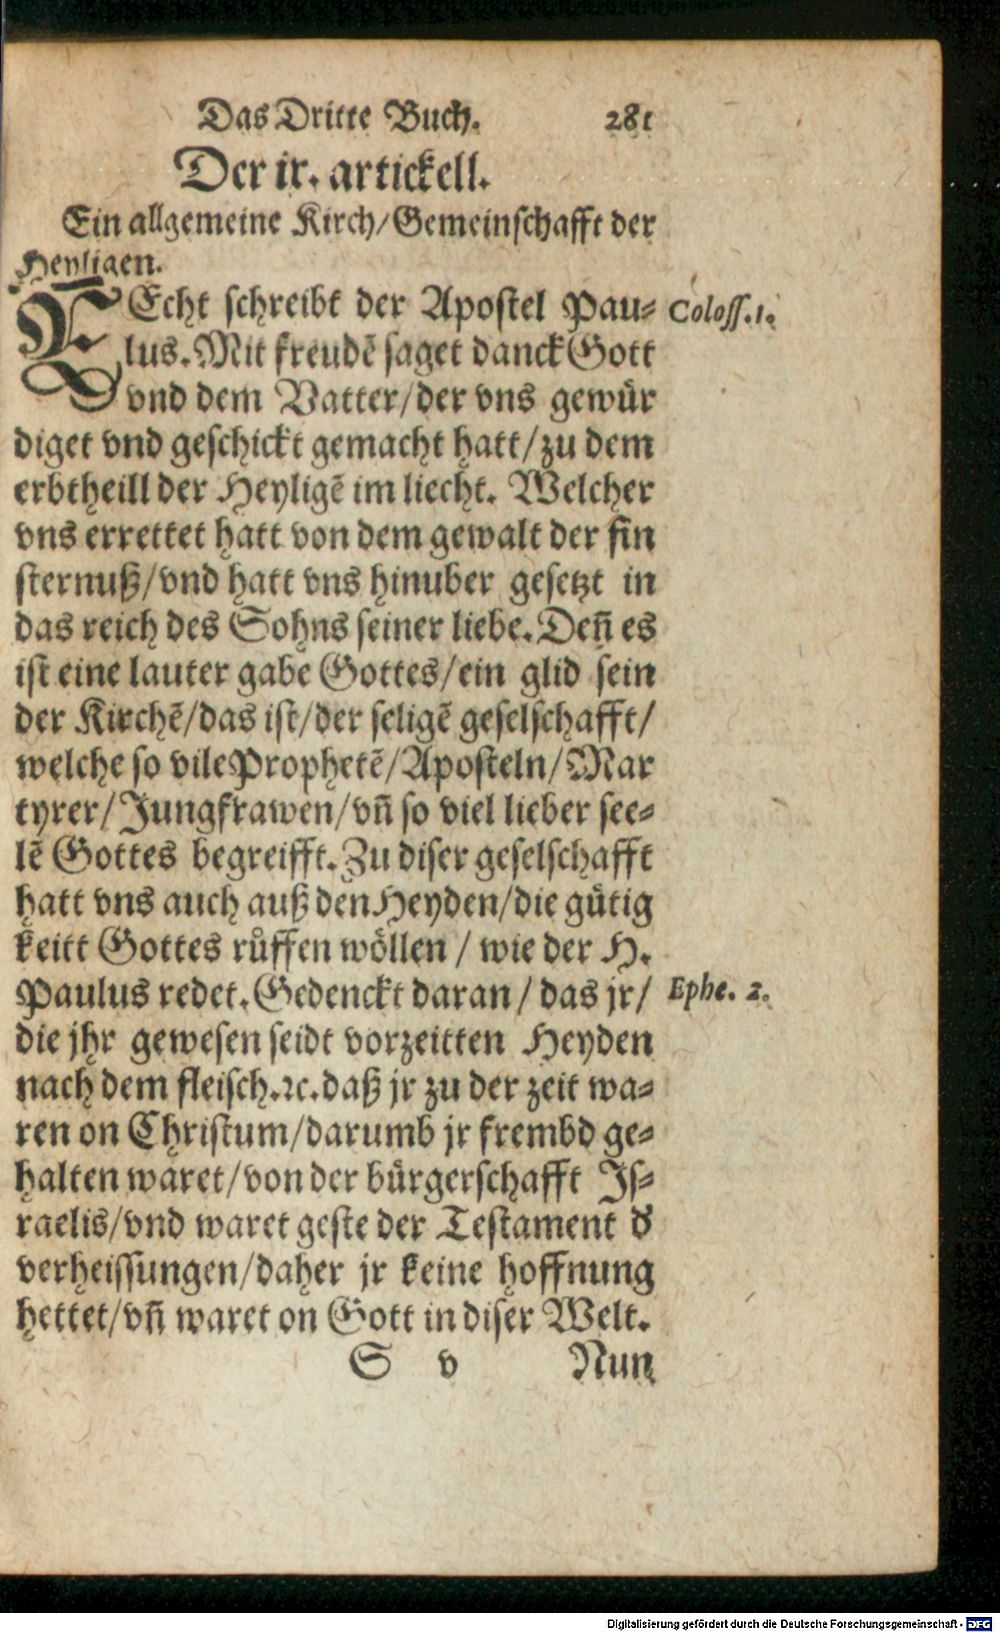 Das Dritte Buch. 281
Der ix. artickell.
Ein allgemeine Kirch/Gemeinschafft der
Heyligen.
REcht schreibt der Apostel Pau- Coloss. 1.
lus. Mit freudẽ saget danck Gott
vnd dem Vatter/der vns gewür
diget vnd geschickt gemacht hatt/zu dem
erbtheill der Heyligẽ im liecht. Welcher
vns errettet hatt von dem gewalt der fin
sternuß/vnd hatt vns hinuber gesetzt in
das reich des Sohns seiner liebe. Deñ es
ist eine lauter gabe Gottes/ein glid sein
der Kirchẽ/das ist/der seligẽ geselschafft/
welche so vile Prophetẽ/Aposteln/Mar
tyrer/Jungfrawen/vñ so viel lieber see-
lẽ Gottes begreifft. Zu diser geselschafft
hatt vns auch auß den Heyden/die gütig
keitt Gottes růffen wöllen / wie der H.
Paulus redet. Gedenckt daran/das jr/ Ephe. 2.
die jhr gewesen seidt vorzeitten Heyden
nach dem fleisch.ꝛc. daß jr zu der zeit wa-
ren on Christum/darumb jr frembd ge-
halten waret/von der bürgerschafft Is-
raelis/vnd waret geste der Testament d'
verheissungen/daher jr keine hoffnung
hettet/vñ waret on Gott in diser Welt.
S v Nun
Digitalisierung gefördert durch die Deutsche Forschungsgemeinschaft - DFG